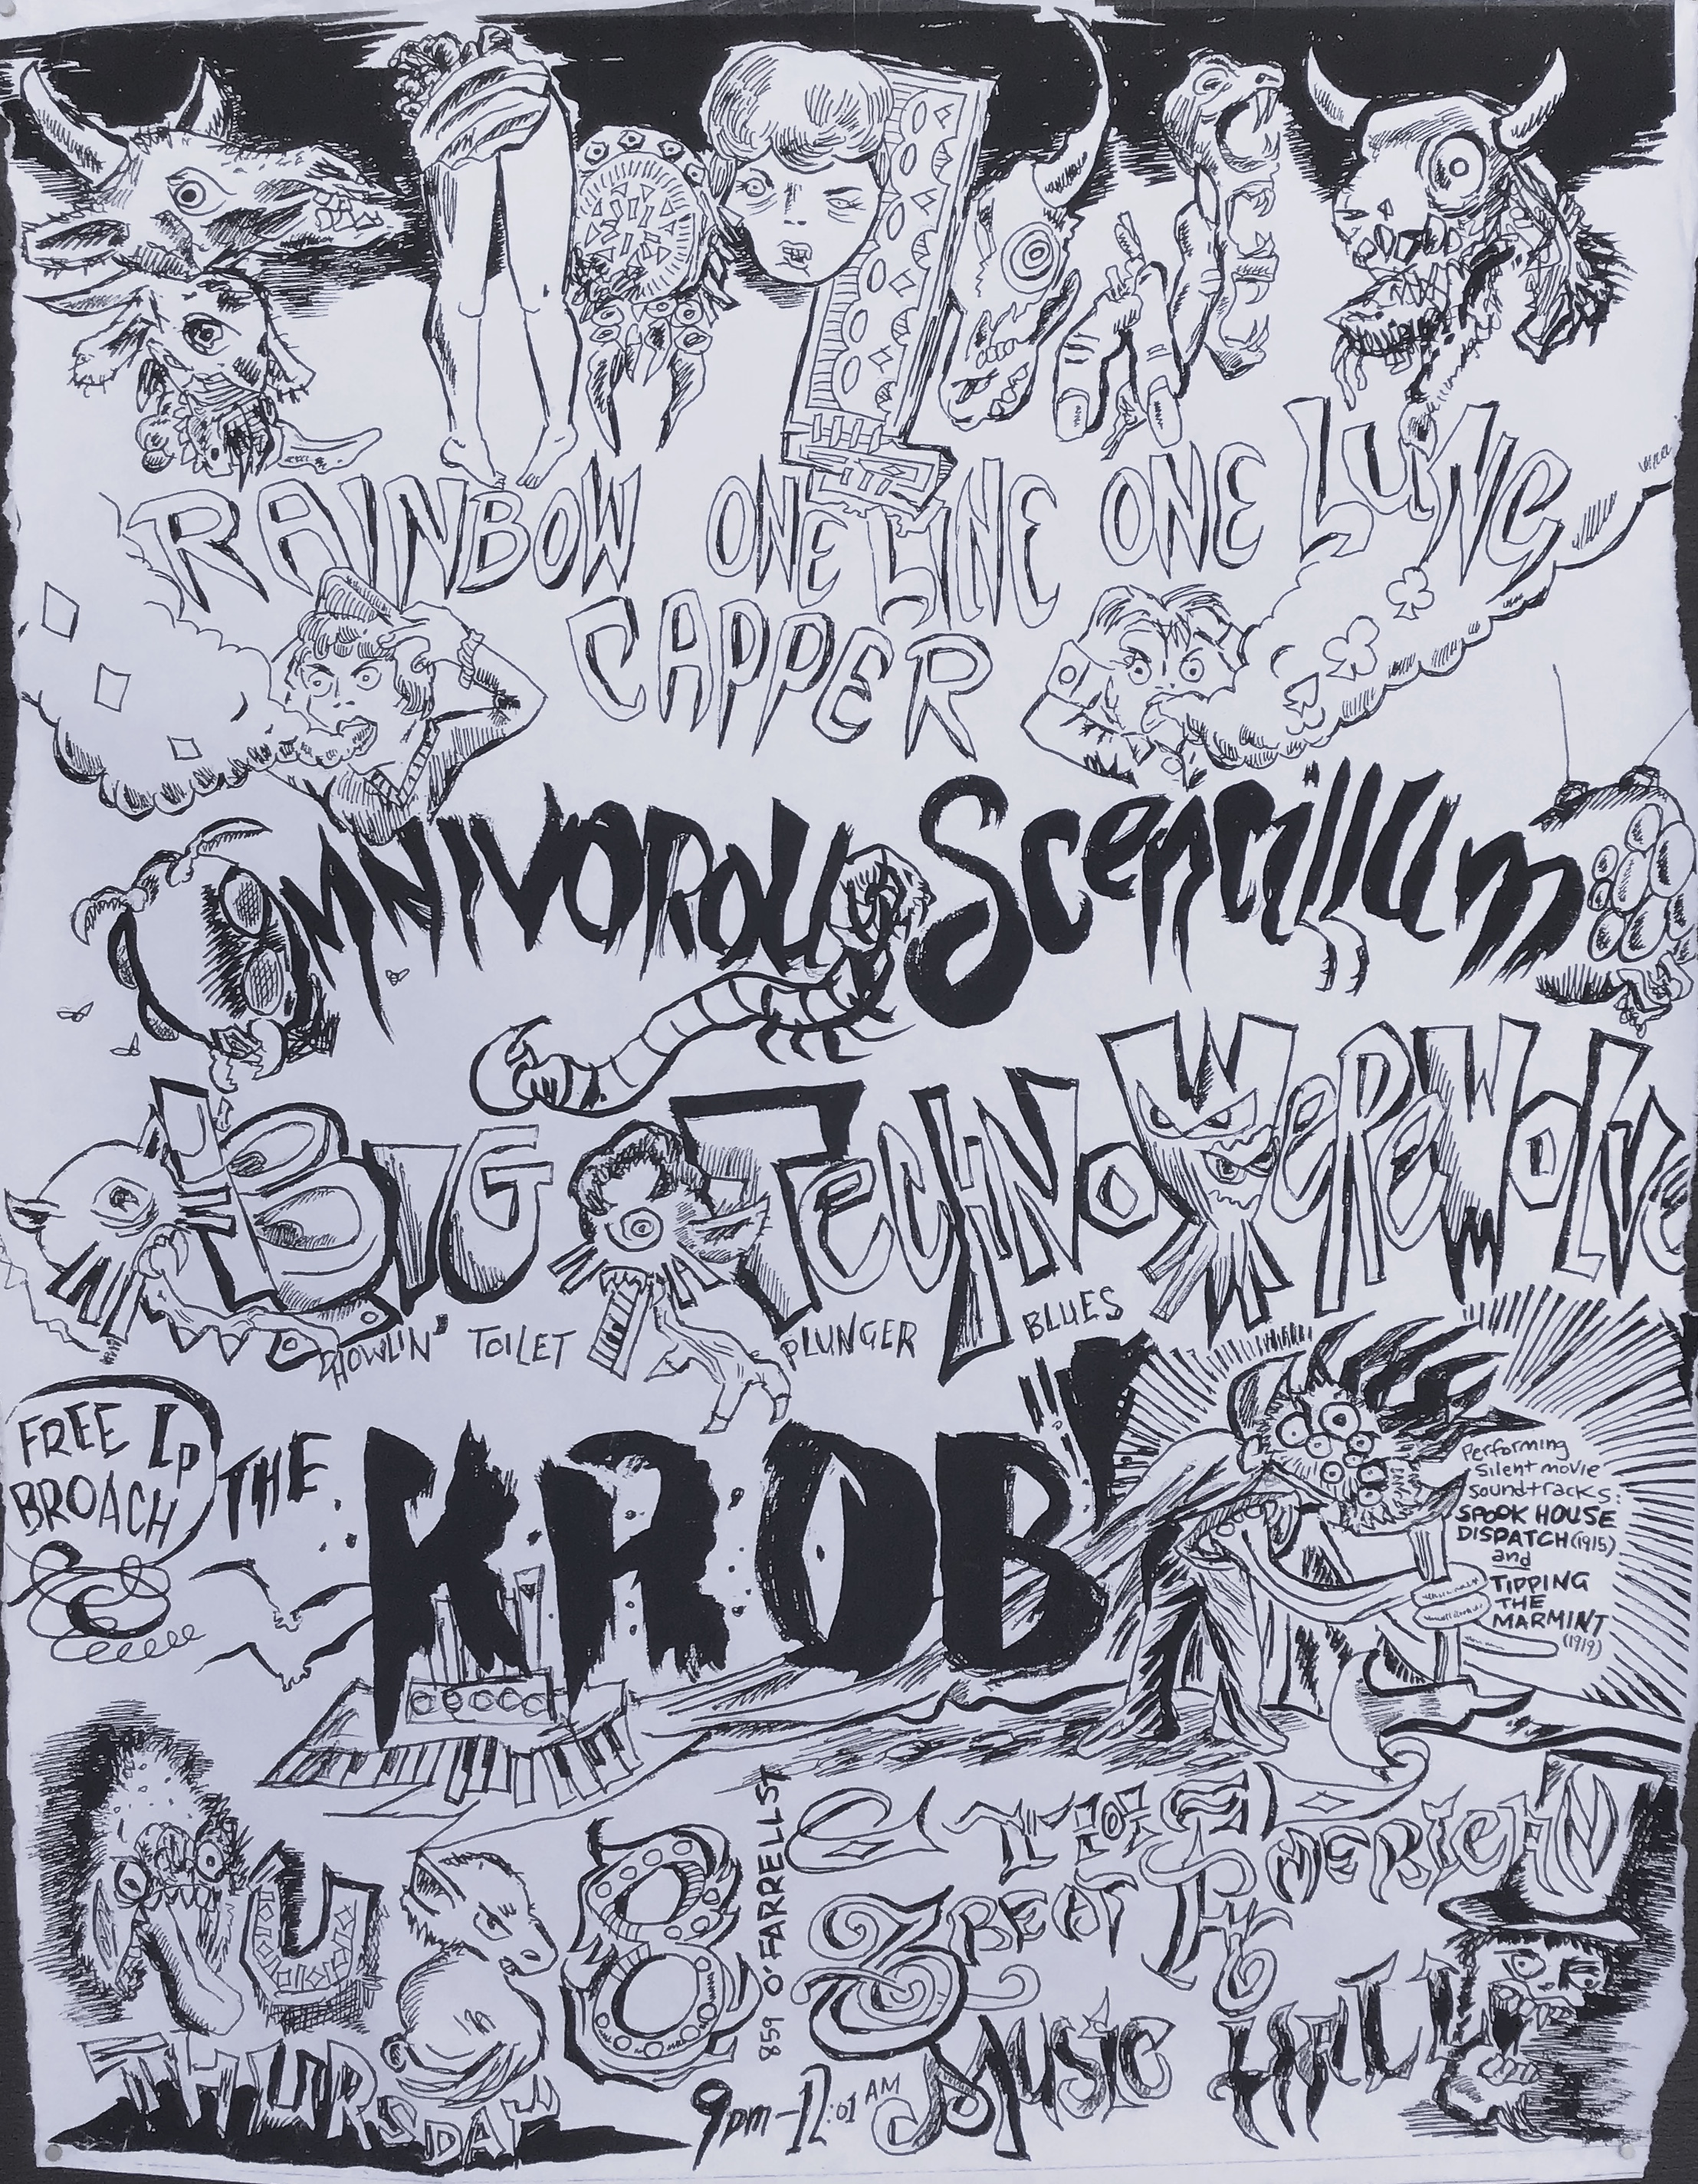 RAINBOW ONE LINE ONE LUNG
CAPPER
OMNIVOROUS Scencillum
BIG TecHNO WereWolve
HOWLIN' TOILET PLUNGER BLUES
FREE LP
BROACH
THE KROB
Performing
Silent movie
soundtracks:
SPOOK HOUSE
DISPATCH (1915)
and
TIPPING
THE
MARMINT
(1919)
AUG 8
THURSDAY
859 O'FARRELL ST
9pm-12:01 AM
THE
GREAT AMERICAN
MUSIC HALL